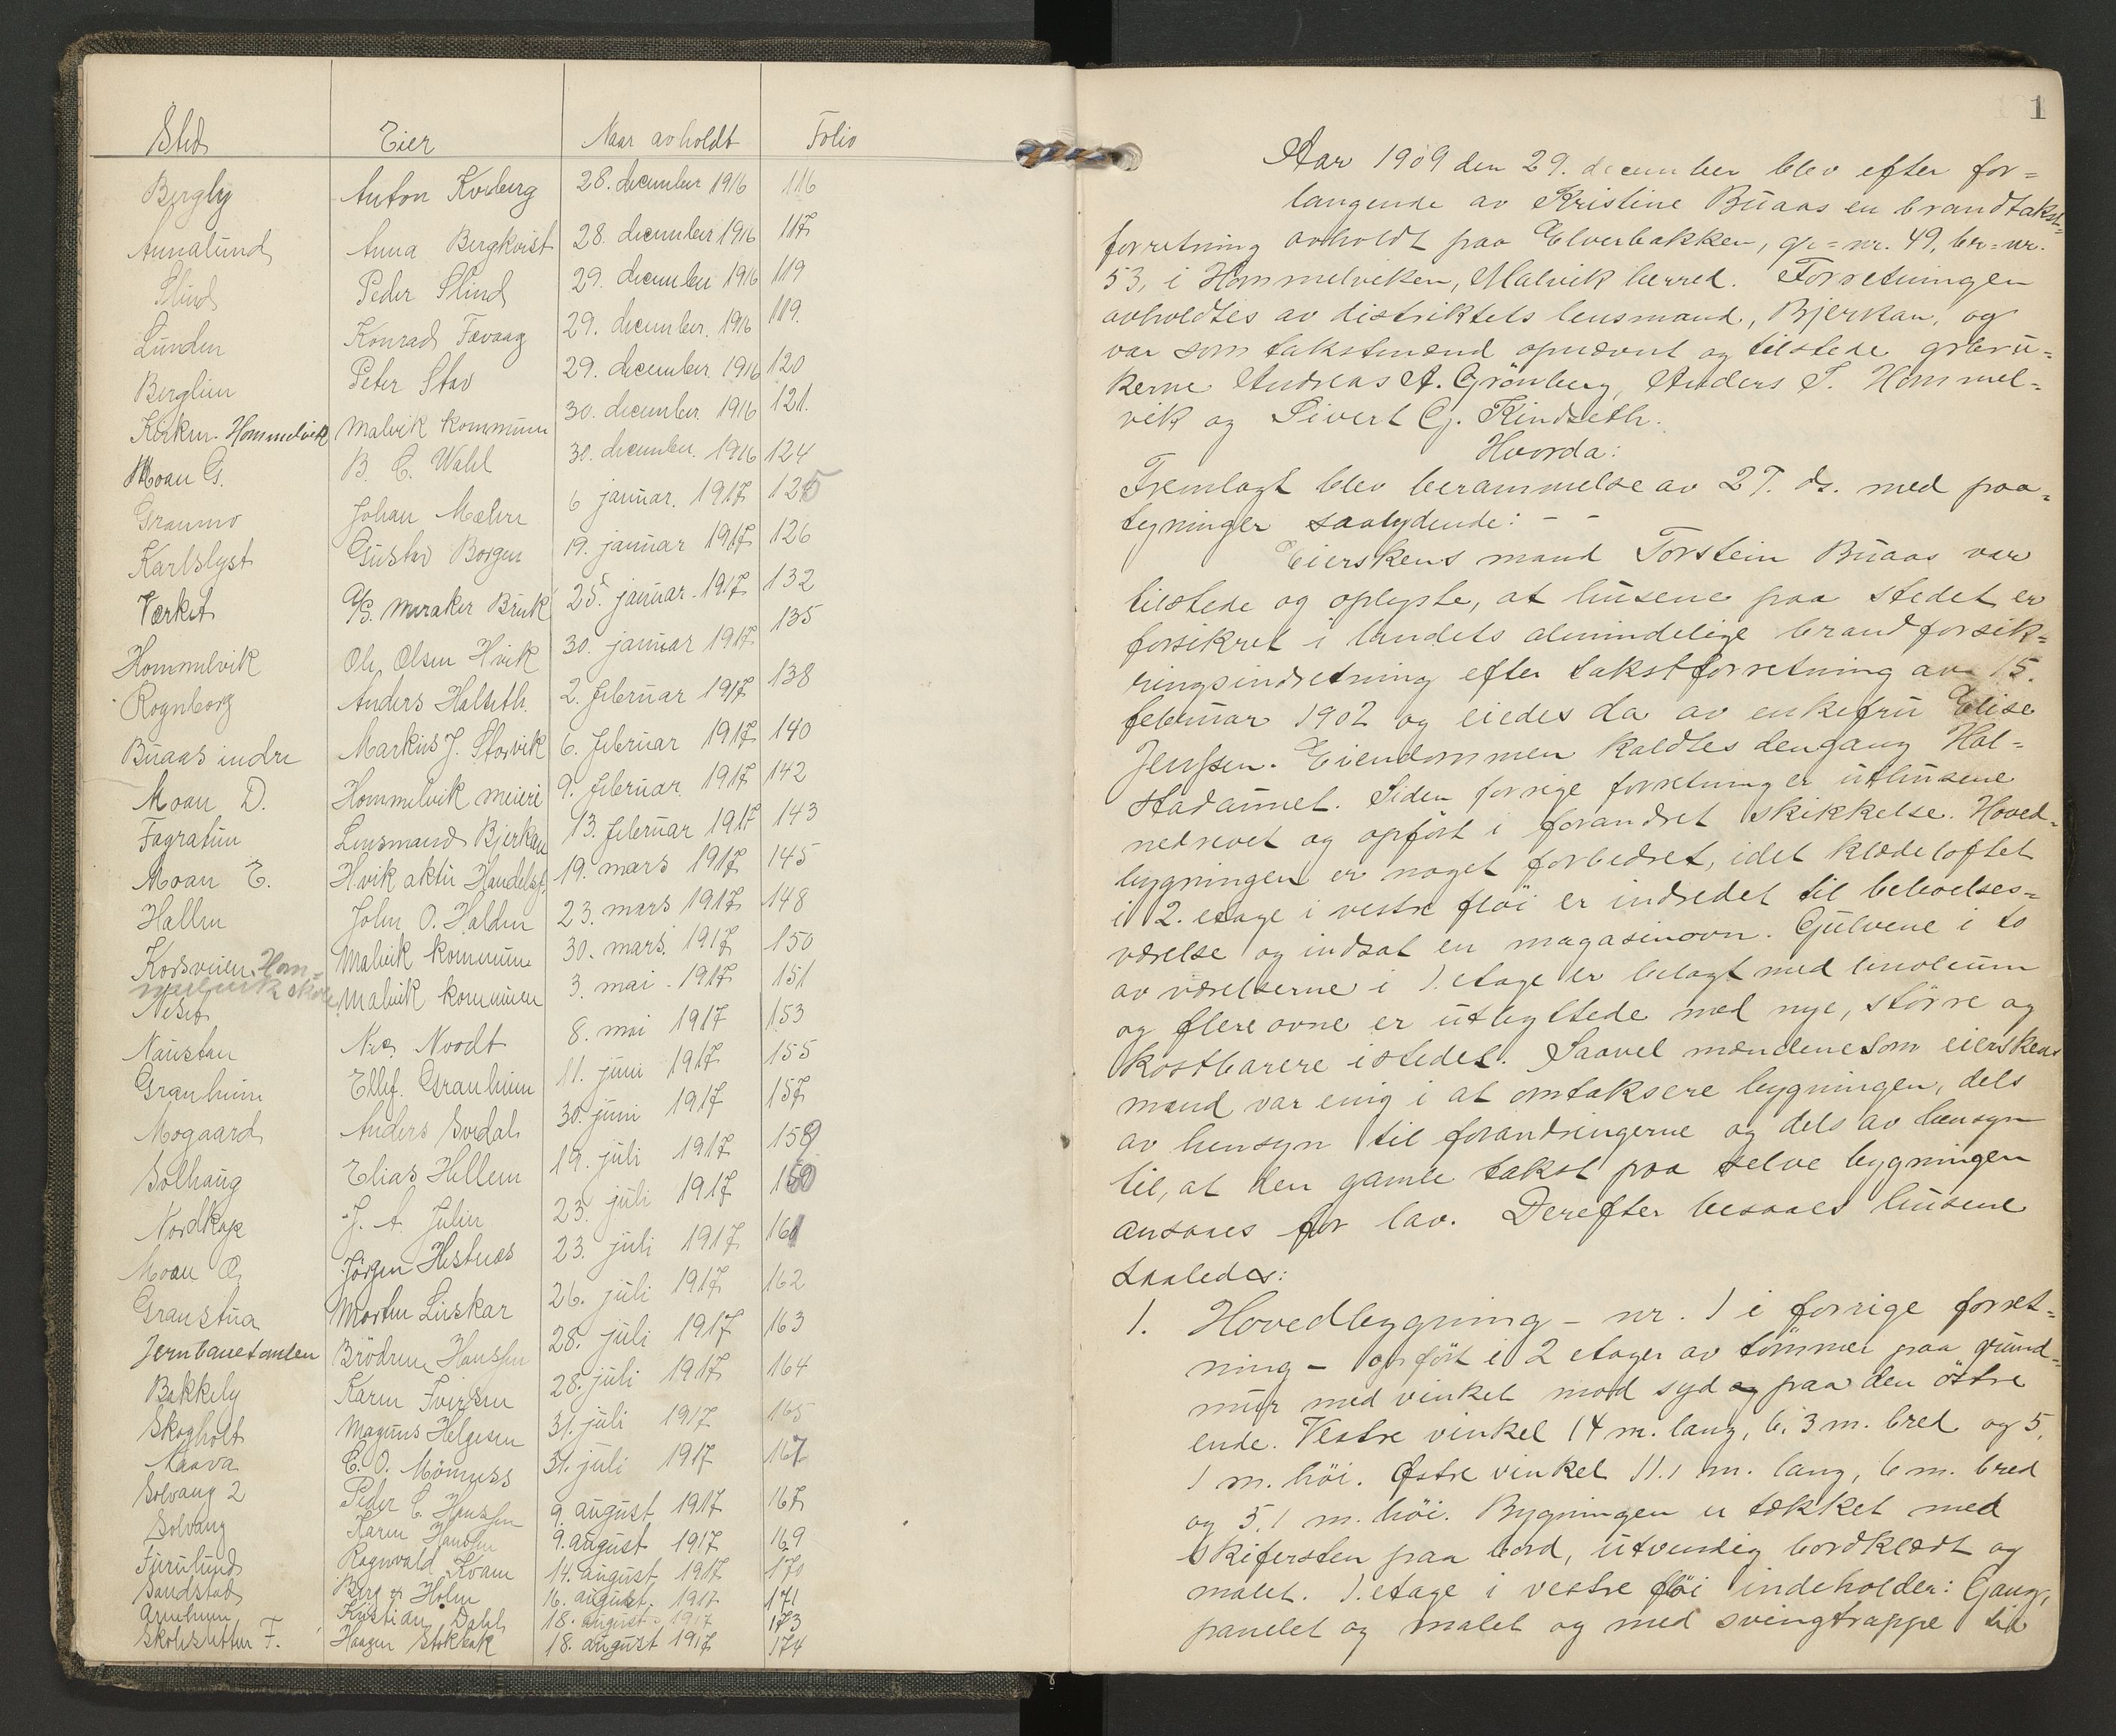 Sted Eier Naar avholdt Folio
Bergly Anton Kveberg 28. december 1916 116
Annalund Anna Bergkvist 28. december 1916 117
Slind Peder Slind 29. december 1916 119
Lunden Konrad Fævaag 29. december. 1916 119.
Berglien Peter Stav 29. december 1916 120
Kirken. Hommelvik Malvik kommune 30. december 1916 121.
Moan G. B. C. Wahl 30. december. 1916 124
Granmo Johan Mæhre 6 januar. 1917 125
Karlslyst Gustav Borgen 19. januar 1917 126
Værket A/S. Meraker Bruk 25. januar. 1917 132
Hommelvik Ole Olsen Hvik 30. januar 1917 135
Rognborg Anders Halseth. 2. februar 1917 138
Buaas indre Markus J. Storvik 6. februar 1917 140
Moan D. Hommelvik meieri 9. februar. 1917 142
Fagratun Lensmand Bjerkan 13. februar 1917 143
Moan E. Hvik aktie Handelsf. 19. mars 1917 145
Hallen John O. Halden 23. mars 1917 148
Korsveien. Hom- Malvik kommune 30. mars. 1917 150
melvik skole
Neset Malvik kommune 3. mai. 1917 151
Naustan Noodt 8. mai 1917 153
Granheim Ellef. Granheim 11. juni 1917 155
Mogaard Anders Svedal 30. juni 1917 157
Solhaug Elias Hellem 19. juli 1917 159
Nordkap J. A. Julin 23. juli 1917 160
Moan Jörgen Hestnes 23. juli 1917 161
Granstua Morten Liiskar 26. juli 1917 162
Jernbanetomten Brödrene Hanssen 28. juli 1917 163
Bakkely Karen Iversen 28. juli 1917 164
Skogholt Magnus Helgesen 31. juli 1917 165
E. O. Mömess 31. juli 1917 167
Solvang 2 Peder C. Hanssen 9. august 1917 167
Solvang Karen 9. august 1917 169
Furulund Ragnvald Kvam 14. august 1917 170
Sandstad Berg & Holm 16. august. 1917 171
Kristian Dahl 18. august 1917 173
F. Haagen Stokbak 18. august 1917 174
1
Aar 1909 den 29. december blev efter for=
langende av Kristine Buaas en brandtakst=
forretning avholdt paa Elverbakken, gr=nr. 49, br=nr.
53, i Hommelviken, Malvik herred. Forretningen
avholdtes av distriktets lensmand, Bjerkan, og
var som takstmænd opnævnt og tilstede grbru=
kerne Andreas A. Grönberg, Anders T. Hommel=
vik og Sivert G. Kindseth.
Hvorda:
Fremlagt blev berammelse av 27. ds. med paa=
tegninger saalydende: - -
Eierskens mand Torstein Buaas var
tilstede og oplyste, at husene paa stedet er
forsikret i landets almindelige brandforsik=
ringsindretning efter takstforretning av 15.
februar 1902 og eiedes da av enkefru Elise
Jenssen. Eiendommen kaldtes dengang Hal=
stadaunet. Siden forrige forretning er uthusene
nedrevet og opfört i forandret skikkelse. Hoved=
bygningen er noget forbedret, idet klædeloftet
i 2. etage i vestre flöi er indredet til beboelses=
værelse og indsat en magasinovn. Gulvene i to
av værelserne i 1. etage er belagt med linoleum
og flere ovne er utbyttede med nye, större og
kostbarere istedet. Saavel mændene som eierskens
mand var enig i at omtaksere bygningen, dels
av hensyn til forandringerne og dels av hensyn
til, at den gamle takst paa selve bygningen
ansaaes for lav. Derefter besaaes husene
saaledes:
1. Hovedbygning - nr. 1 i forrige forret=
ning - opfört i 2 etager av tömmer paa grund=
mur med vinkel mod syd og paa den östre
ende. Vestre vinkel 14 m. lang, 6.3 m. bred og 5.
1 m. höi. Östre vinkel 11.1 m. lang, 6 m. bred
og 5.1 m. höi. Bygningen er tækket med
skifersten paa bord, utvendig bordklædt og
malet. 1. etage i vestre flöi indeholder: Gang,
panelet og malet og med svingtrappe til